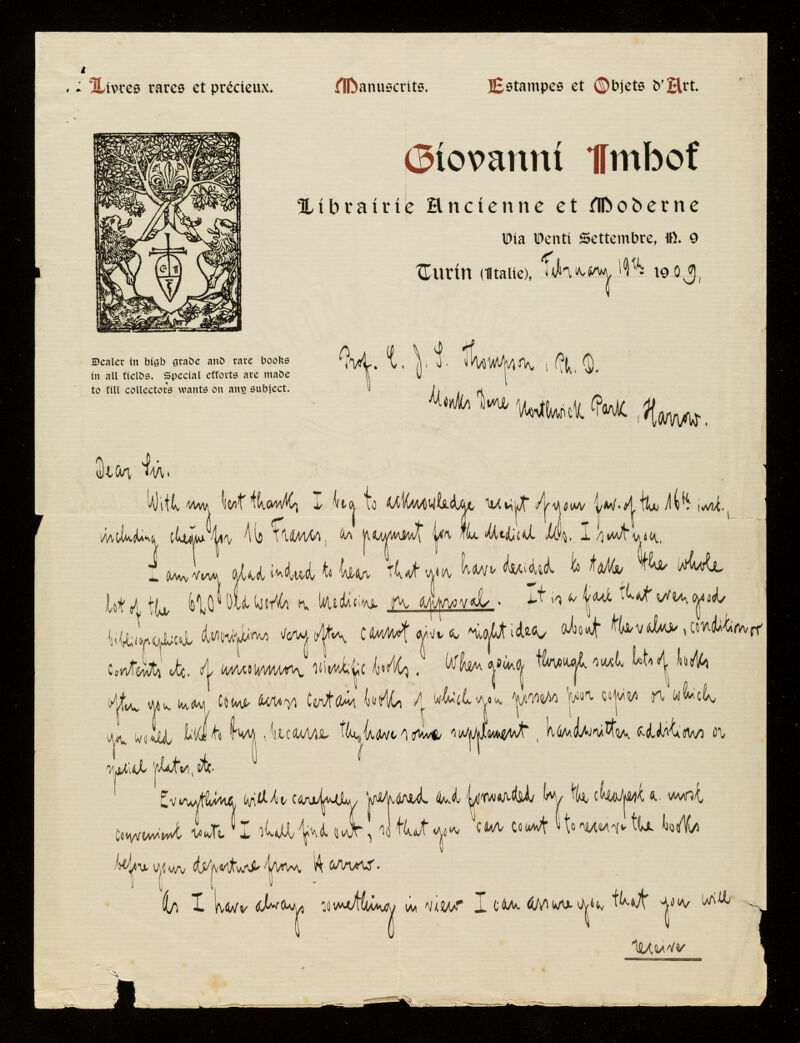 Livres rares et précieux. Manuscrits. Estampes et Objets d'Art.
Giovanni Imhof
Librairie Ancienne et Moderne
Via Venti Settembre, N. 9
Turin (Italie), February 19th 1909.
G I
Dealer in high grade and rare books
in all fields. Special efforts are made
to fill collector's wants on any subject.
Prof. C. J. S. Thompson, Ph. D.
Monks Dene Northwick Park, Harrow.
Dear Sir.
With my best thanks I beg to acknowledge receipt of your fav. of the 16th inst.,
including cheque for 16 Francs, as payment for the Medical Ms. I sent you.
I am very glad indeed to hear that you have decided to take the whole
lot of the 620 Old Works on Medicine on approval. It is a fact that even good
bibliographical descriptions very often cannot give a right idea about the value, condition or
contents etc. of uncommon scientific books. When going through such lots of books
often you may come across certain books of which you possess poor copies or which
you would like to buy, because they have some supplement, handwritten additions or
special plates, etc.
Everything will be carefully prepared and forwarded by the cheapest a. most
convenient route I shall find out, so that you can count to receive the books
before your departure from Harrow.
As I have always something in view I can assure you that you will
receive